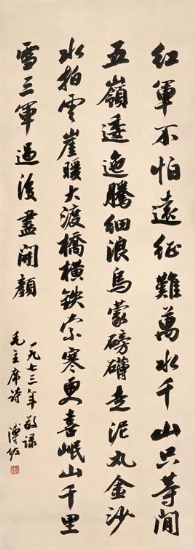 紅軍不怕遠征難萬水千山只等閒
五嶺逶迤騰細浪烏蒙磅礴走泥丸金沙
水拍雲崖暖大渡橋橫鉄索寒更喜岷山千里
雪三軍過後盡開顏
一九七三年敬録
毛主席詩
溥佐